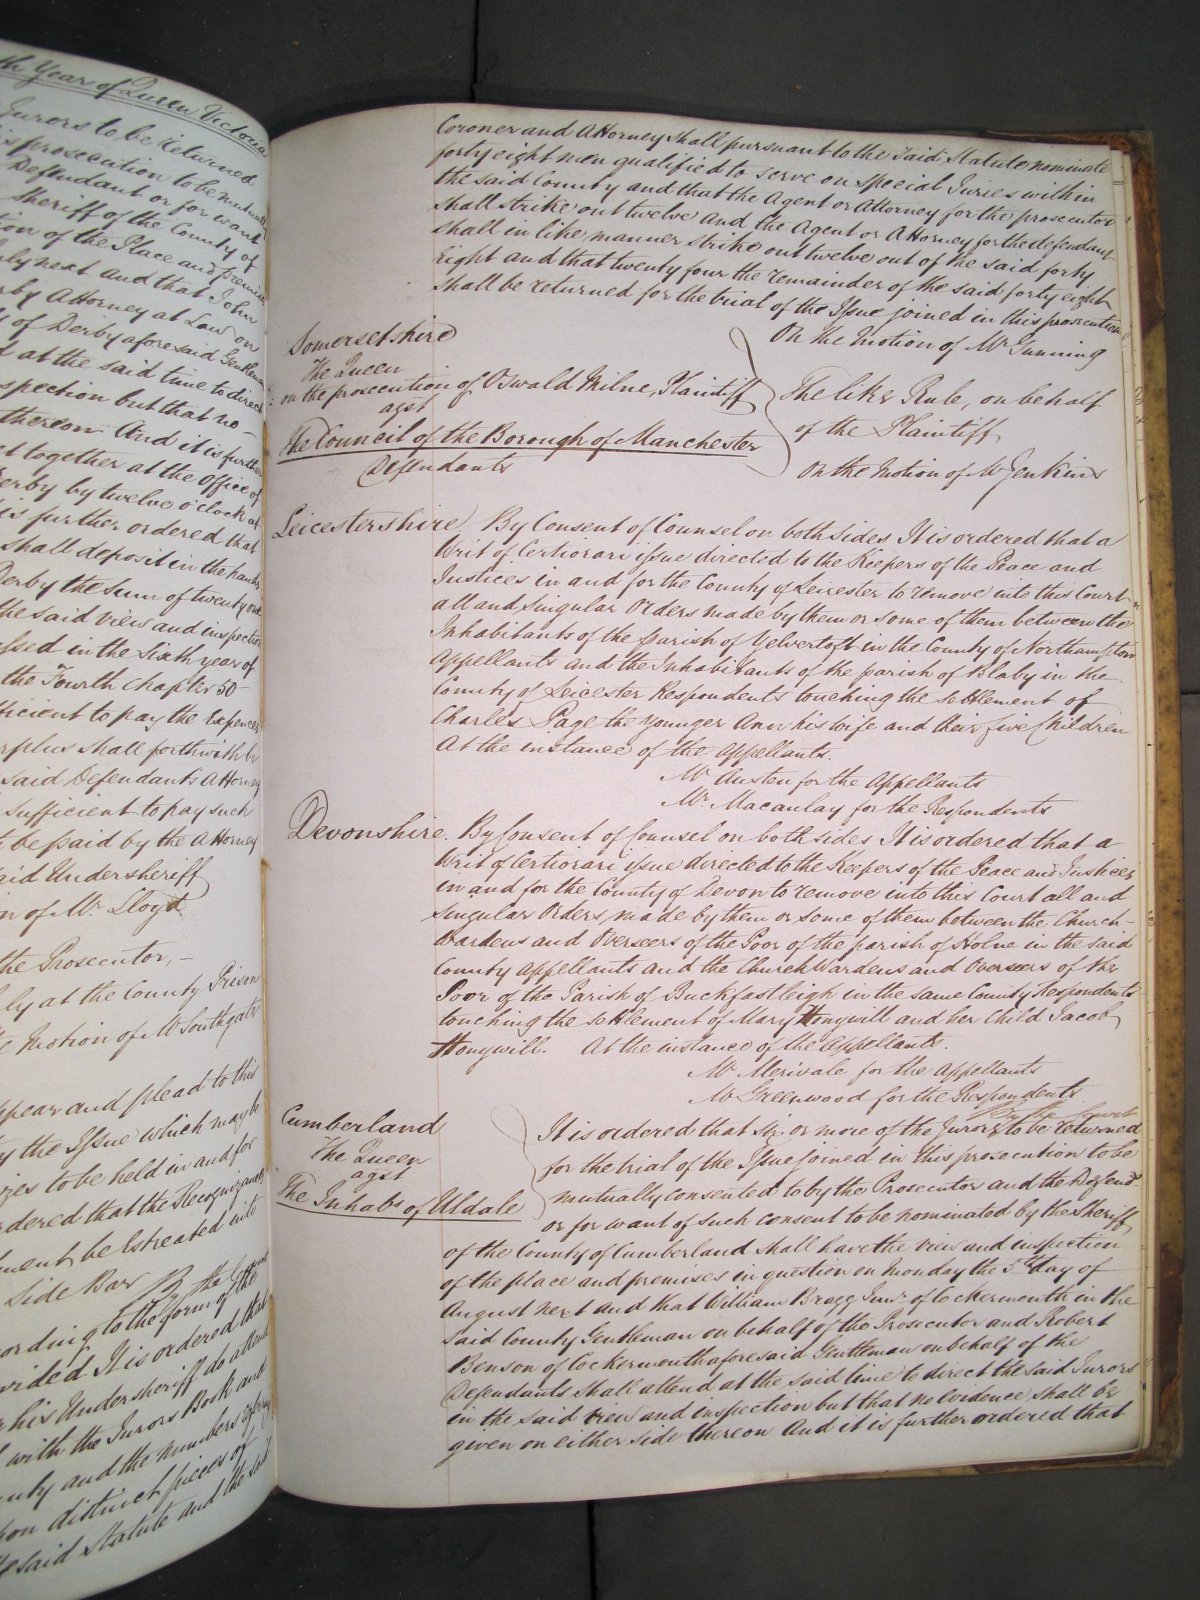 th Year of Queen Victoria
Jurors to be returned
is prosecution to be mutually
Defendant or for want
Sheriff of the County of
tion of the Place and premises
uly next and that John
rby Attorney at Law on
y of Derby aforesaid Gentleman
d at the said time to direct
spection but that no
thereon And it is further
et together at the Office of
erby by twelve o'clock at
is further ordered that
shall deposit in the hands
Derby the Sum of twenty one
the said view and inspection
assed in the Sixth year of
the Fourth Chapter 50
fficient to pay the Expences
rplus shall forthwith be
said Defendants Attorney
sufficient to pay such
t be paid by the Attorney
aid Undersheriff
n of Mr. Lloyd
the Prosecutor,
ly at the County Prison
e Motion of Mr Southgate
ppear and plead to this
y the Issue which may be
zes to be held in and for
rdered that the Recognizances
ment be Estreated into
Side Bar By the Court
ording to the form of the
vided It is ordered that
r his Undersheriff do attend
with the Jurors Book and
unty and the numbers
pon distinct pieces of
he said Statute and the said
Coroner and Attorney shall pursuant to the said Statute nominate
forty eight men qualified to serve on Special Juries within
the said County and that the Agent or Attorney for the prosecutor
shall strike out twelve and the Agent or Attorney for the defendant
shall in like manner strike out twelve out of the said forty
Eight and that twenty four the remainder of the said forty eight
shall be returned for the trial of the Issue joined in this prosecution
On the Motion of Mr Gunning
Somersetshire
The Queen
on the prosecution of Oswald Milne, Plaintiff
agst
The Council of the Borough of Manchester
Defendants
The like Rule, on behalf
of the Plaintiff
On the Motion of Mr Jenkins
Leicestershire By Consent of Counsel on both sides It is ordered that a
Writ of Certiorari issue directed to the Keepers of the Peace and
Justices in and for the County of Leicester to remove into this Court
all and singular Orders made by them or some of them between the
Inhabitants of the parish of Yelvertoft in the County of Northampton
Appellants and the Inhabitants of the parish of Blaby in the
County of Leicester Respondents touching the settlement of
Charles Page the younger Ann his wife and their five Children
At the instance of the appellants.
Mr Austen for the Appellants
Mr. Macaulay for the Respondents
Devonshire. By Consent of Counsel on both sides It is ordered that a
Writ of Certiorari issue directed to the Keepers of the Peace and Justices
in and for the County of Devon to remove into this Court all and
singular Orders, made by them or some of them between the Church
Wardens and Overseers of the Poor of the parish of Holne in the said
County appellants and the Church Wardens and Overseers of the
Poor of the Parish of Buckfastleigh in the same County Respondents
touching the settlement of Mary Honywill and her Child Jacob
Honywill. At the instance of the Appellants.
Mr Merivale for the Appellants
Mr Greenwood for the Respondents
By the Court
Cumberland
The Queen
agst
The Inhabs of Uldale
It is ordered that six or more of the Jurors to be returned
for the trial of the Issue joined in this prosecution to be
mutually consented to by the Prosecutor and the Defendts
or for want of such consent to be nominated by the Sheriff
of the County of Cumberland shall have the view and inspection
of the place and premises in question on Monday the 5th day of
August next and that William Bragg Junr. of Cockermouth in the
said County Gentleman on behalf of the Prosecutor and Robert
Benson of Cockermouth aforesaid Gentleman on behalf of the
Defendants shall attend at the said time to direct the said Jurors
in the said view and inspection but that no evidence shall be
given on either side thereon And it is further ordered that